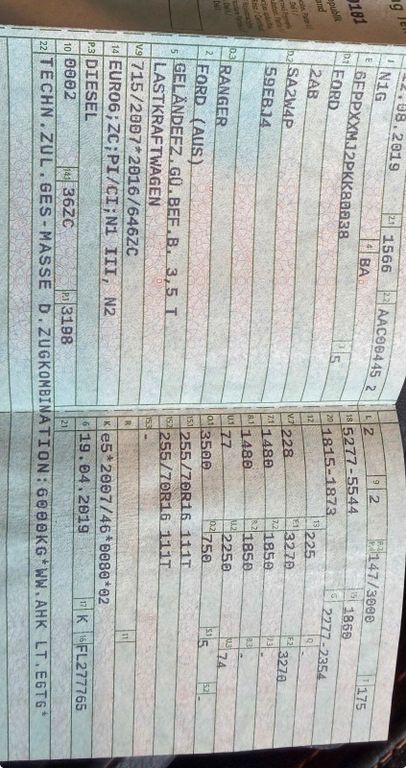 2.08.2019
J N1G 2.1 1566 2.2 AAC00445 2
E 6FPPXXMJ2PKK80038 4 BA 3 5
D.1 FORD
2AB
D.2 SA2W4P
59EBJ4
D.3 RANGER
2 FORD (AUS)
5 GELÄNDEFZ.GÜ.BEF.B. 3,5 T
LASTKRAFTWAGEN
V.9 715/2007*2016/646ZC
14 EURO6;ZC;PI/CI;N1 III, N2
P.3 DIESEL
10 0002 14.1 36ZC P.1 3198
22 TECHN.ZUL.GES-MASSE D.ZUGKOMBINATION:6000KG*WW.AHK LT.EGTG*
L 2 9 2 P.2 P.4 147/3000 T 175
18 5277-5544 19 1860
20 1815-1873 G 2277-2354
12 - 13 225 Q -
V.7 228 F.1 3270 F.2 3270
7.1 1480 7.2 1850 7.3 -
8.1 1480 8.2 1850 8.3 -
U.1 77 U.2 2250 U.3 74
O.1 3500 O.2 750 S.1 5 S.2 -
15.1 255/70R16 111T
15.2 255/70R16 111T
15.3 -
R 11
K e5*2007/46*0080*02
6 19.04.2019 17 K 16 FL277765
21